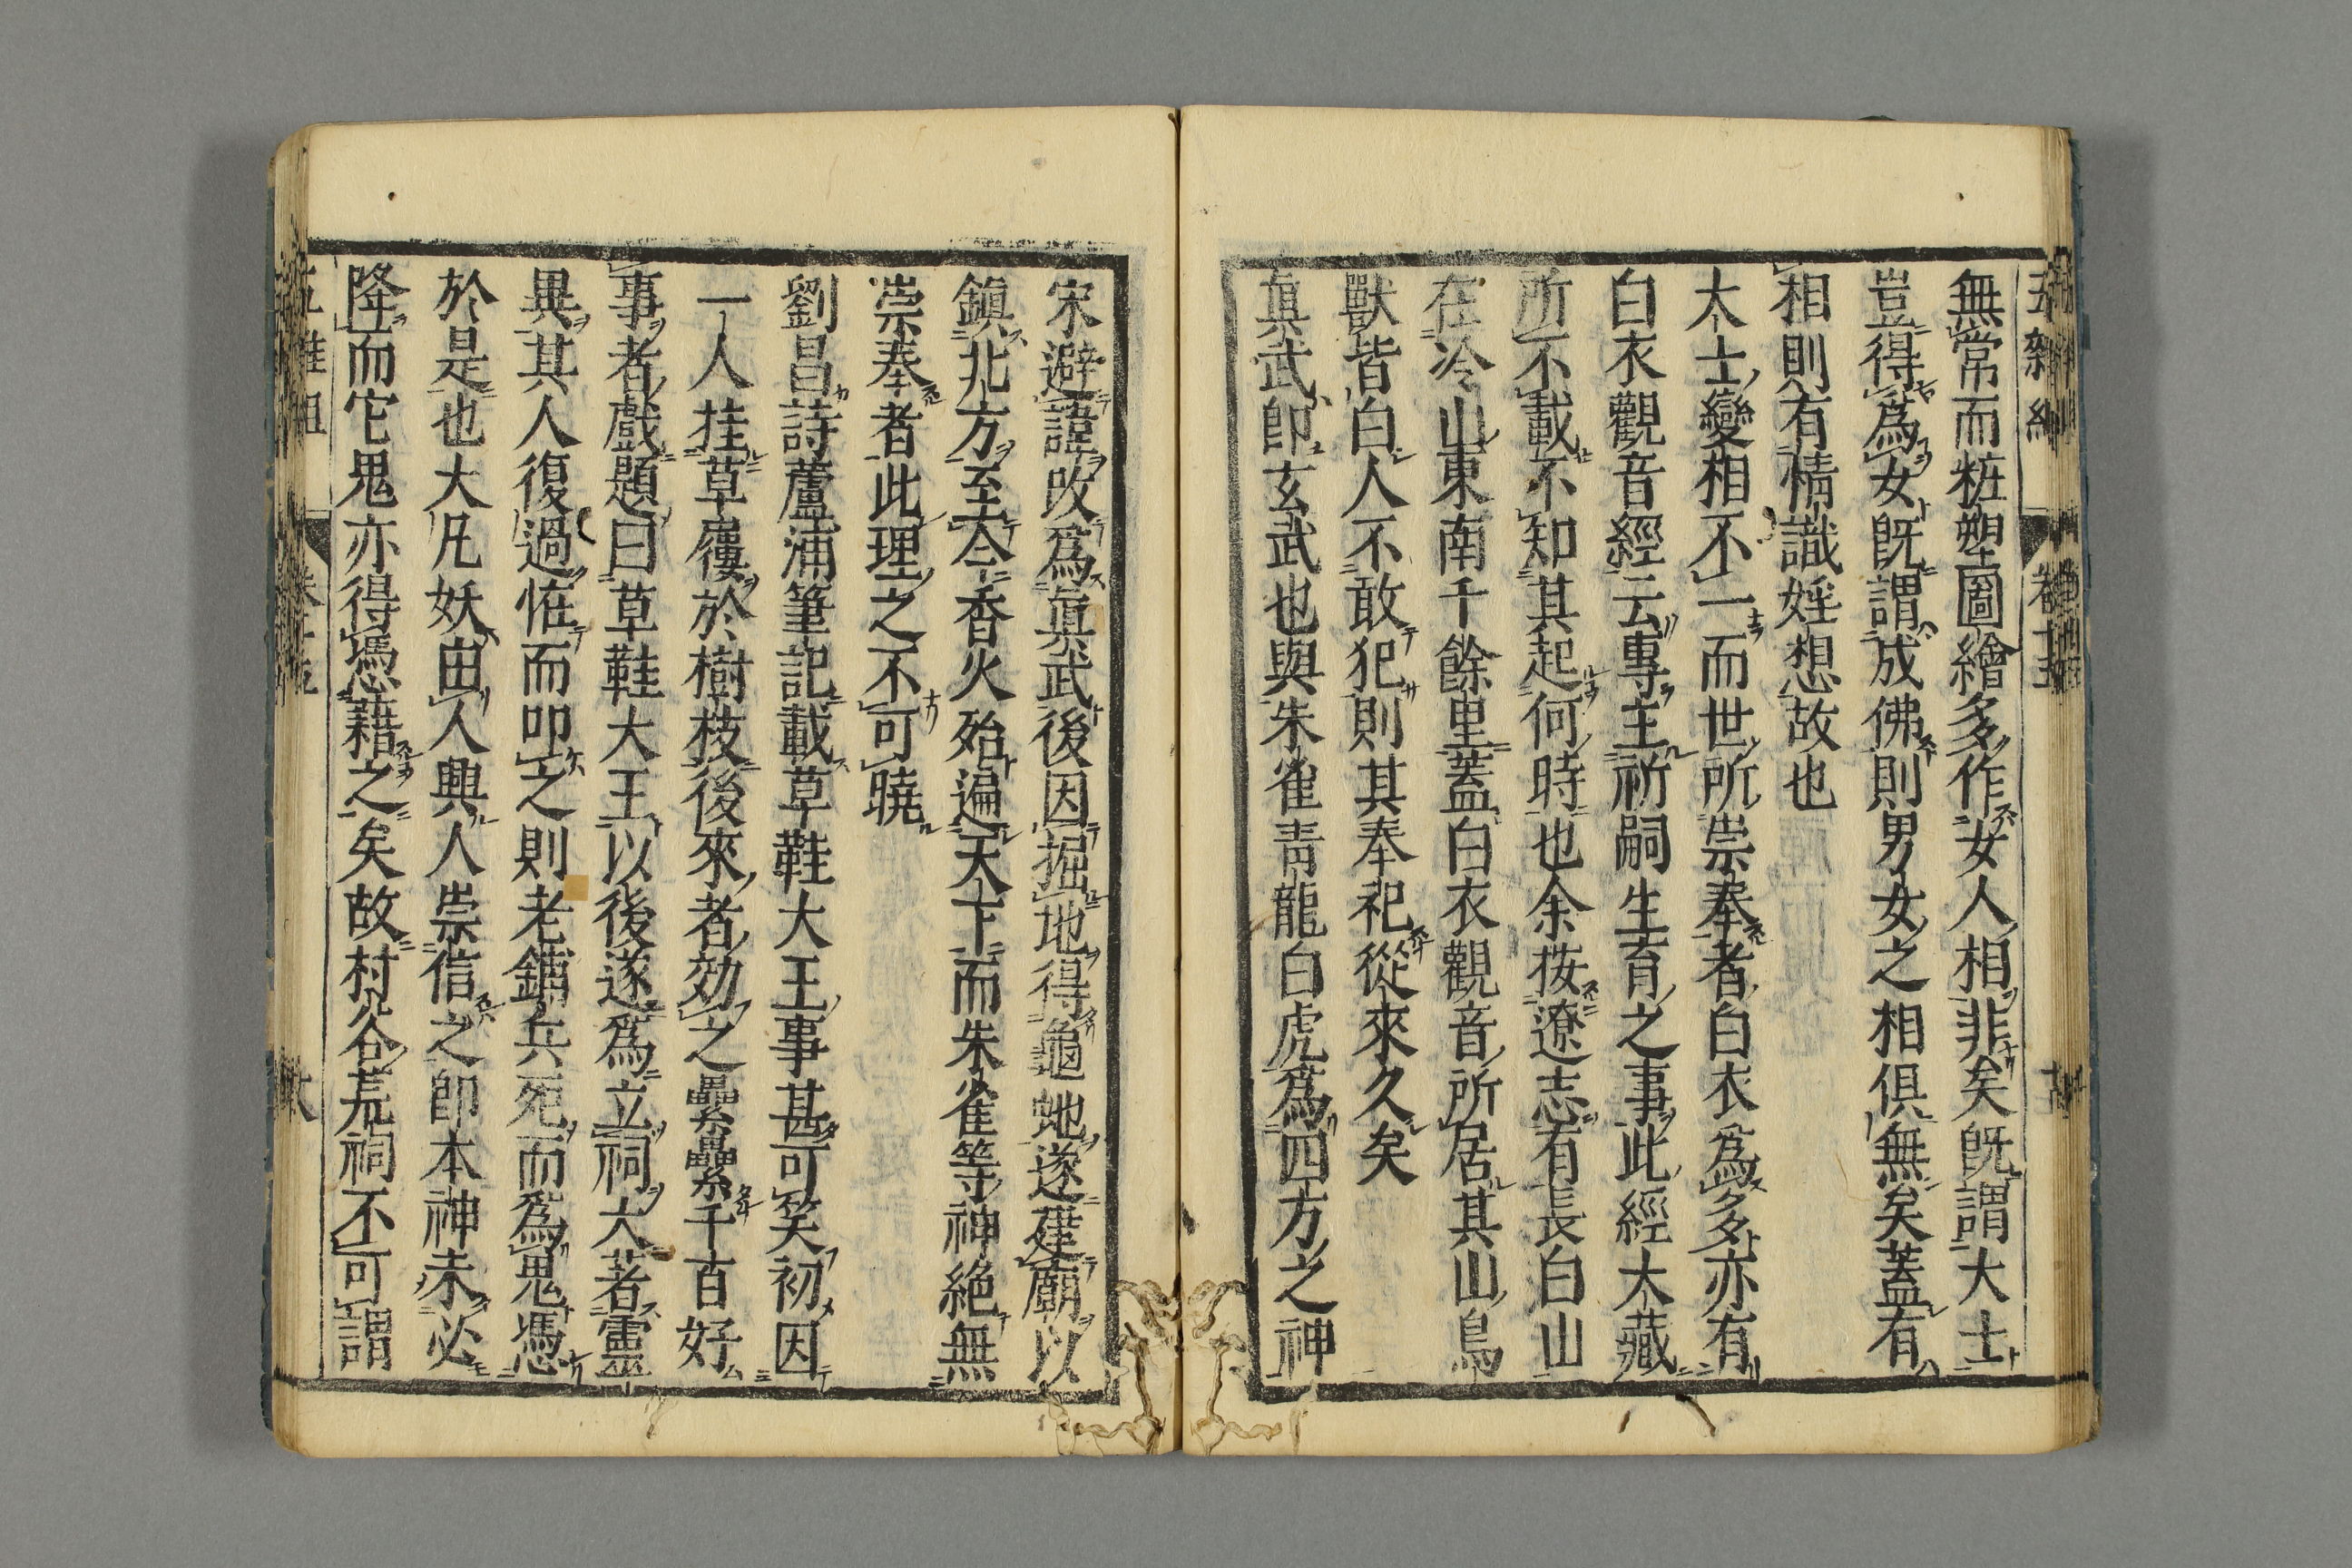 無常而粧塑圖繪多作女人相非矣既謂大士
豈得爲女既謂成佛則男女之相俱無矣蓋有
相則有情識婬想故也
大士變相不一而世所崇奉者白衣爲多亦有
白衣觀音經云專主祈嗣生育之事此經大藏
所不載不知其起何時也余按遼志有長白山
在冷山東南千餘里蓋白衣觀音所居其山鳥
獸皆白人不敢犯則其奉祀從來久矣
眞武即玄武也與朱雀青龍白虎爲四方之神
宋避諱改爲眞武後因掘地得龜蛇遂建廟以
鎮北方至今香火殆遍天下而朱雀等神絶無
崇奉者此理之不可曉
劉昌詩蘆浦筆記載草鞋大王事甚可笑初因
一人挂草屨於樹枝後來者効之纍纍千百好
事者戲題曰草鞋大王以後遂爲立祠大著靈
異其人復過恠而叩之則老鋪兵死而爲鬼憑
於是也大凡妖由人興人崇信之即本神未必
降而它鬼亦得憑藉之矣故村谷荒祠不可謂